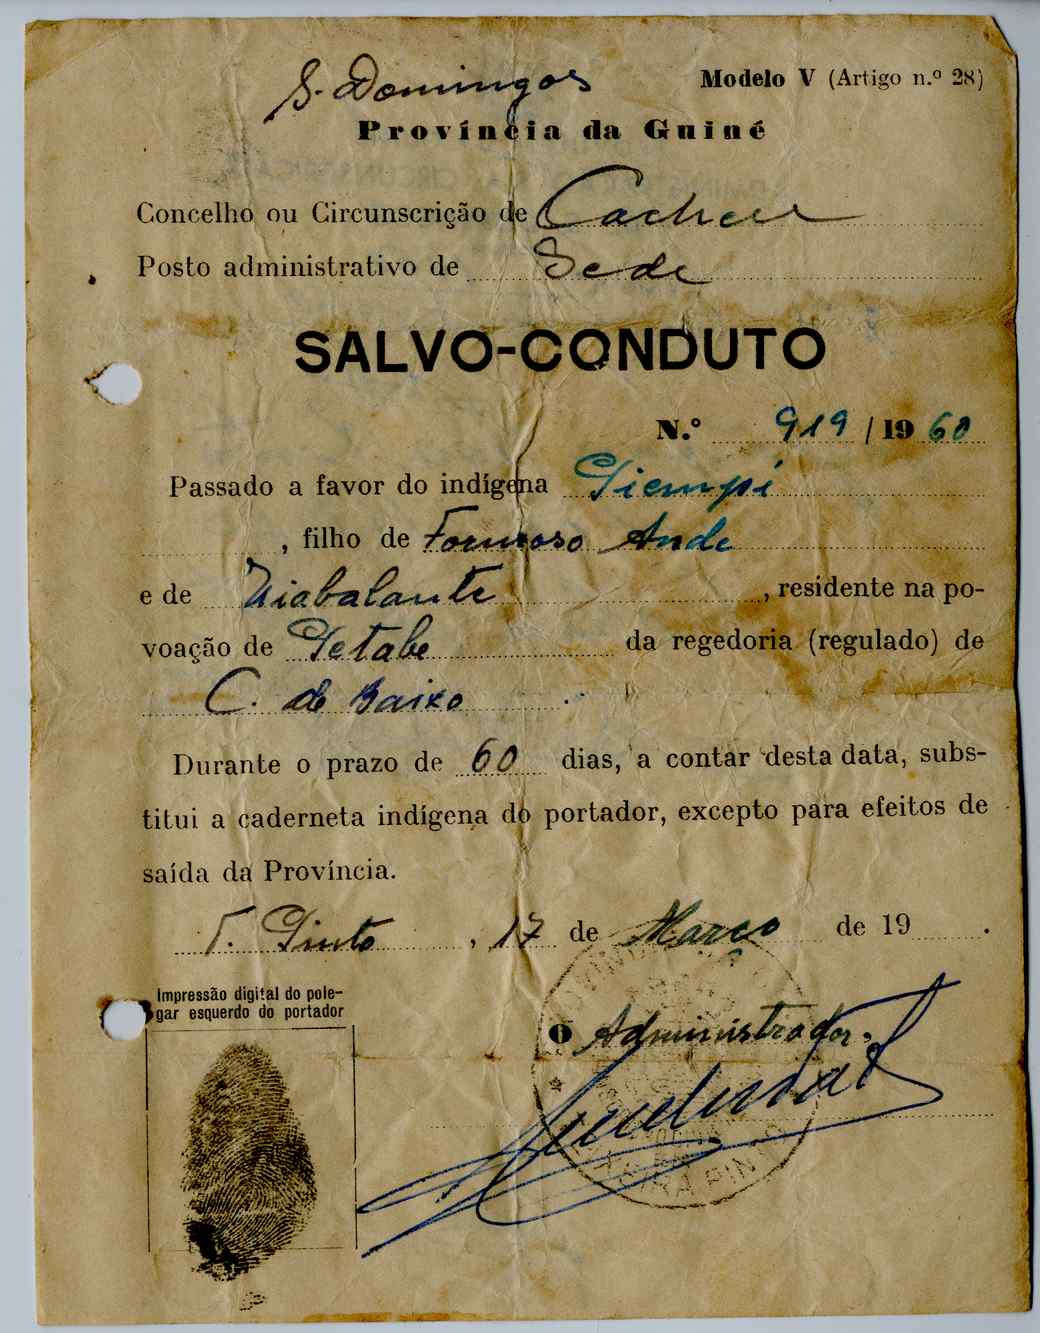 S. Domingos
Modelo V (Artigo n.º 28)
Província da Guiné
Concelho ou Circunscrição de Cacheu
Posto administrativo de Sede
SALVO-CONDUTO
N.º 919 / 1960
Passado a favor do indígena Piempi
, filho de Formoso Ande
e de Diabalante, residente na po-
voação de Petabe da regedoria (regulado) de
C. de Baixo
Durante o prazo de 60 dias, a contar desta data, subs-
titui a caderneta indígena do portador, excepto para efeitos de
saída da Província.
T. Pinto, 17 de Março de 19 .
Impressão digital do pole-
gar esquerdo do portador
O Administrador,